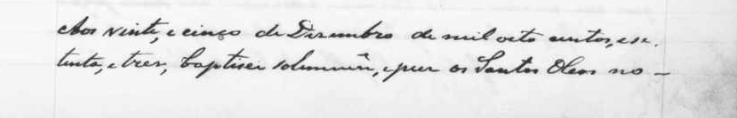 Aos vinte, e cinco de Dezembro de mil oito centos, e se-
tenta, e tres, baptisei solemnte, e puz os Santos Oleos no -